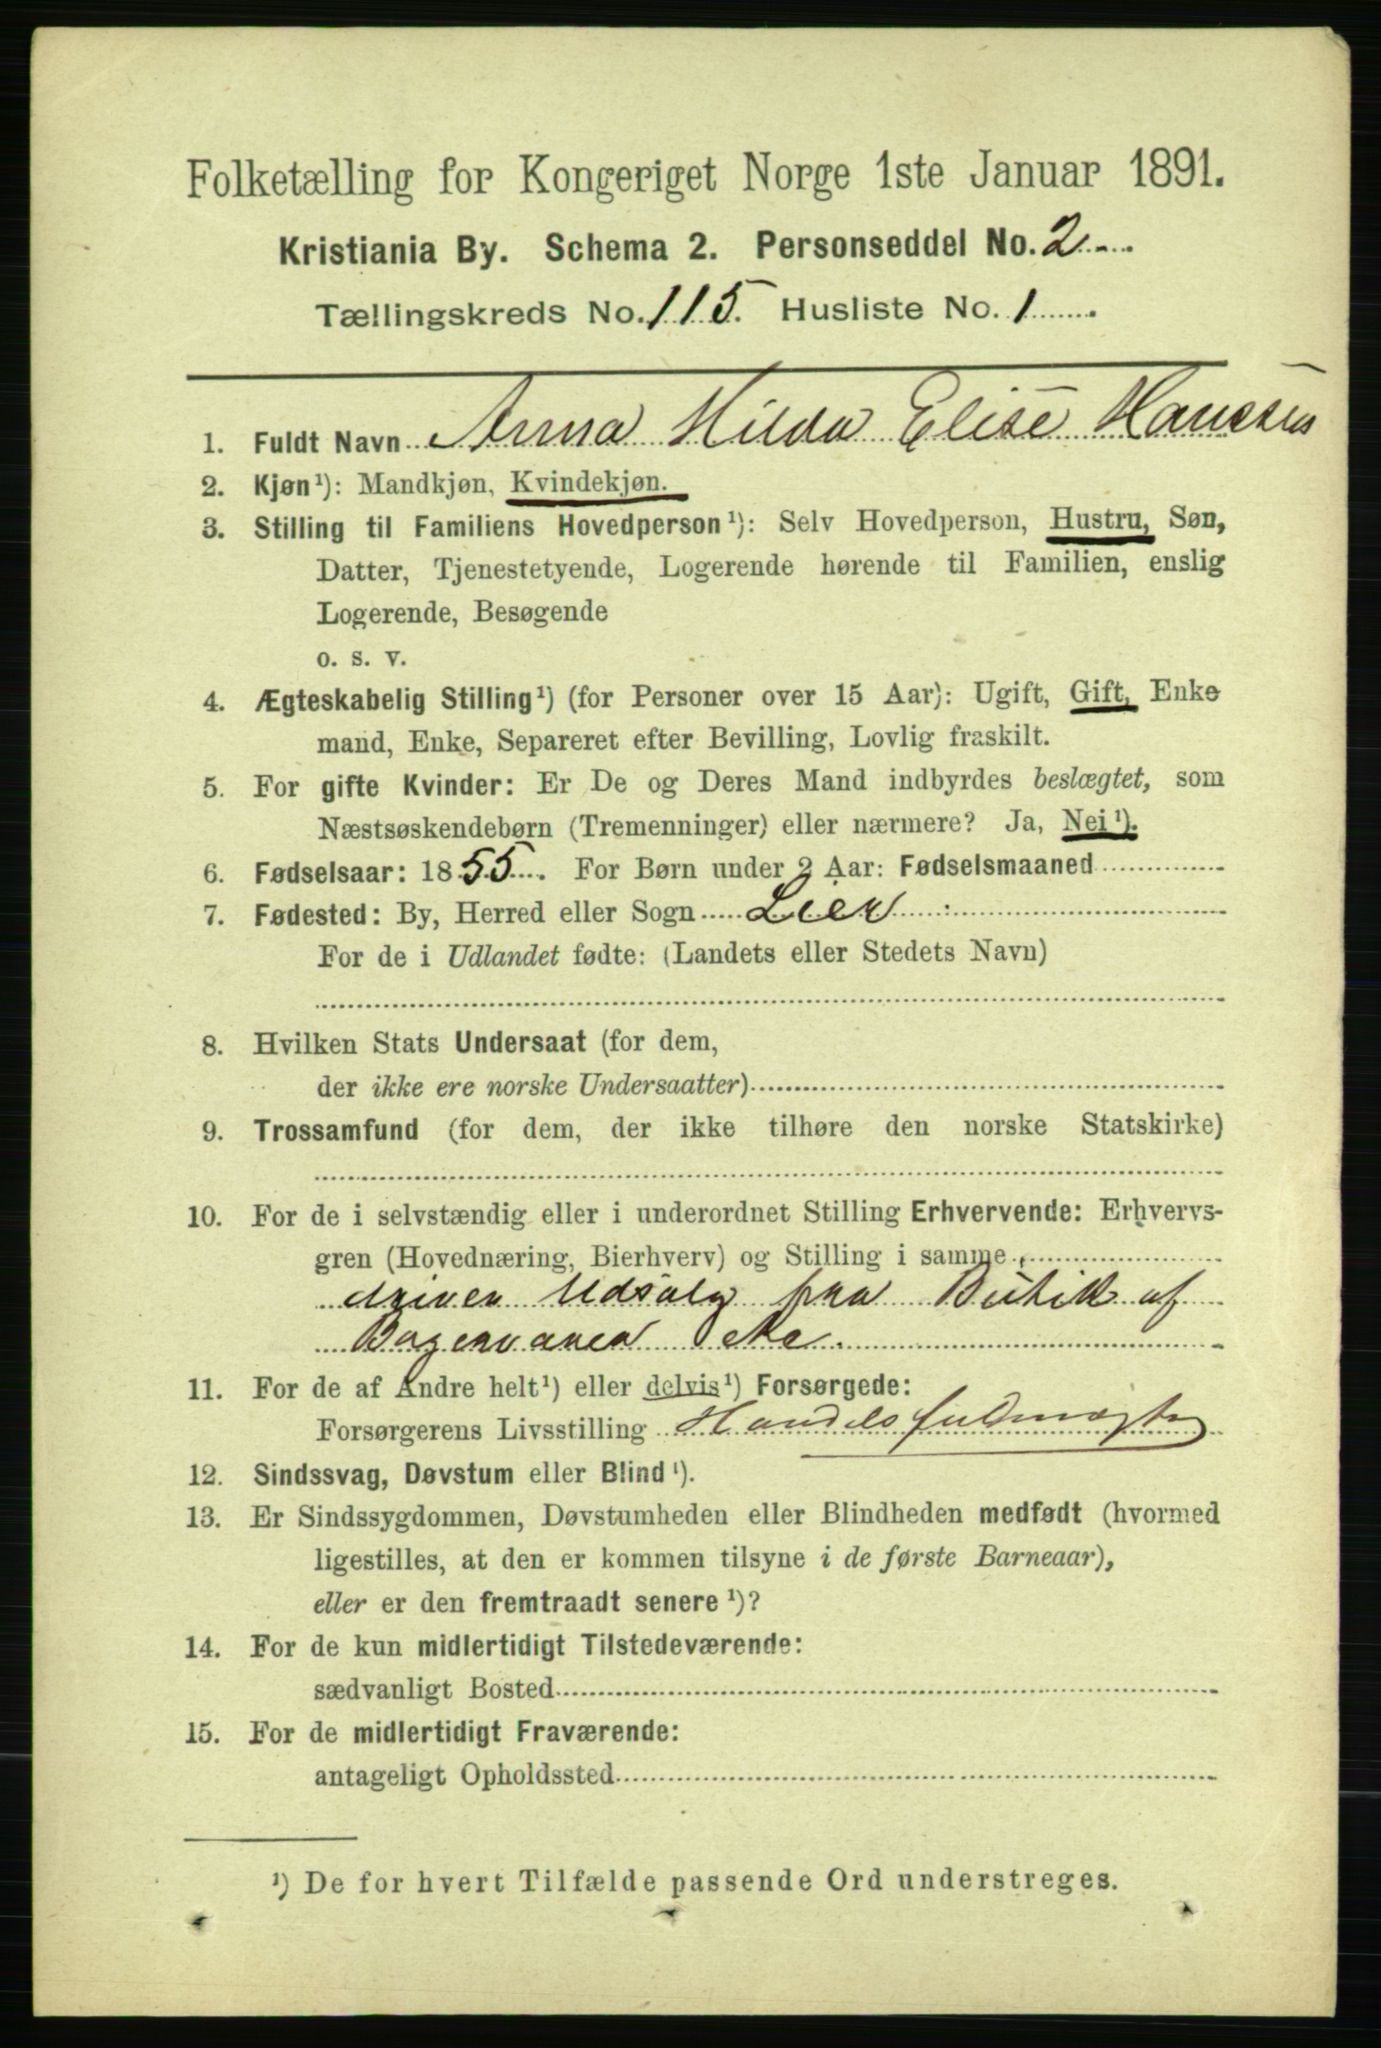 Folketælling for Kongeriget Norge 1ste Januar 1891.
Kristiania By. Schema 2. Personseddel No. 2
Tællingskreds No. 115. Husliste No. 1
1. Fuldt Navn Anna Hilda Elise Hanssen
2. Kjøn¹): Mandkjøn, Kvindekjøn.
3. Stilling til Familiens Hovedperson¹): Selv Hovedperson, Hustru, Søn,
Datter, Tjenestetyende, Logerende hørende til Familien, enslig
Logerende, Besøgende
o. s. v.
4. Ægteskabelig Stilling¹) (for Personer over 15 Aar): Ugift, Gift, Enke
mand, Enke, Separeret efter Bevilling, Lovlig fraskilt.
5. For gifte Kvinder: Er De og Deres Mand indbyrdes beslægtet, som
Næstsøskendebørn (Tremenninger) eller nærmere? Ja, Nei¹).
6. Fødselsaar: 1855. For Børn under 2 Aar: Fødselsmaaned
7. Fødested: By, Herred eller Sogn Lier
For de i Udlandet fødte: (Landets eller Stedets Navn)
8. Hvilken Stats Undersaat (for dem,
der ikke ere norske Undersaatter)
9. Trossamfund (for dem, der ikke tilhøre den norske Statskirke)
10. For de i selvstændig eller i underordnet Stilling Erhvervende: Erhvervs-
gren (Hovednæring, Bierhverv) og Stilling i samme
driver Udsalg fra Butik af
Bagervarer
11. For de af Andre helt¹) eller delvis¹) Forsørgede:
Forsørgerens Livsstilling Handelsfuldmægtig
12. Sindssvag, Døvstum eller Blind¹).
13. Er Sindssygdommen, Døvstumheden eller Blindheden medfødt (hvormed
ligestilles, at den er kommen tilsyne i de første Barneaar),
eller er den fremtraadt senere¹)?
14. For de kun midlertidigt Tilstedeværende:
sædvanligt Bosted
15. For de midlertidigt Fraværende:
antageligt Opholdssted
¹) De for hvert Tilfælde passende Ord understreges.